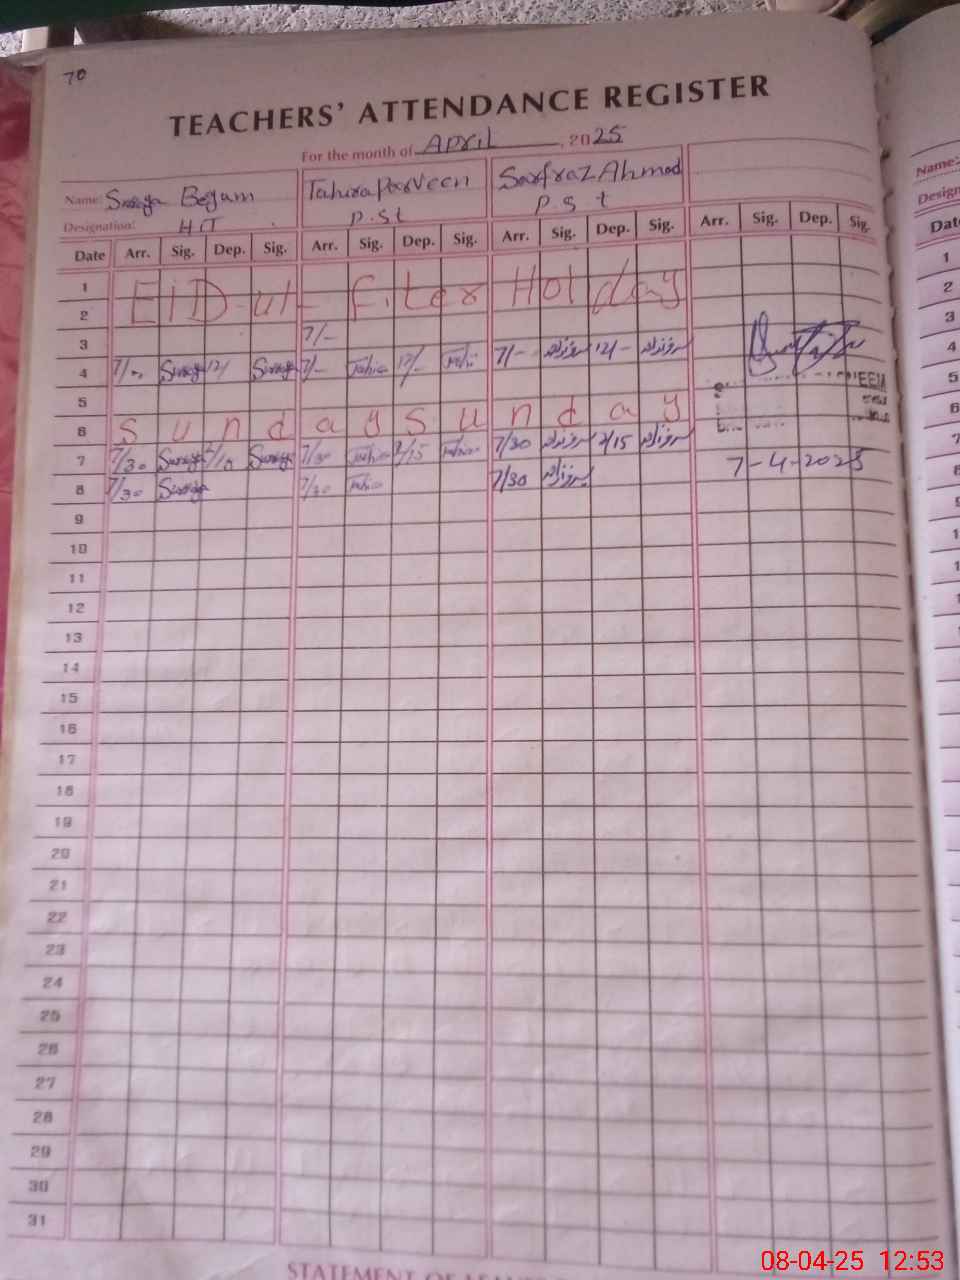 70
TEACHERS' ATTENDANCE REGISTER
For the month of April, 2025
Name: Suraya Begum Tahira Parveen Sarfraz Ahmad Name:
Designation: HT P.St P.S.t Design
Date Arr. Sig. Dep. Sig. Arr. Sig. Dep. Sig. Arr. Sig. Dep. Sig. Arr. Sig. Dep. Sig. Date
1 EiD-ul- Fiter Holiday 1
2 2
3 7/- 3
4 7/- Suraya 12/ Suraya 7/- Tahira 12/- Tahira 7/- 12/- 4
5 5
6 S u n d a y S u n d a y 6
7 7/30 Suraya Suraya 7/30 Tahira Tahira 7/30 2/15 7-4-2025 7
8 7/30 Suraya 7/30 Tahira 7/30 8
9
10
11
12
13
14
15
16
17
18
19
20
21
22
23
24
25
26
27
28
29
30
31
08-04-25 12:53